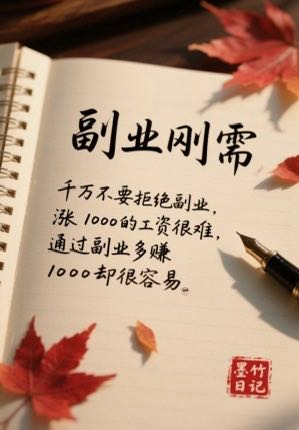 副业刚需
千万不要拒绝副业，
涨1000的工资很难，
通过副业多赚
1000却很容易。
墨竹
日记